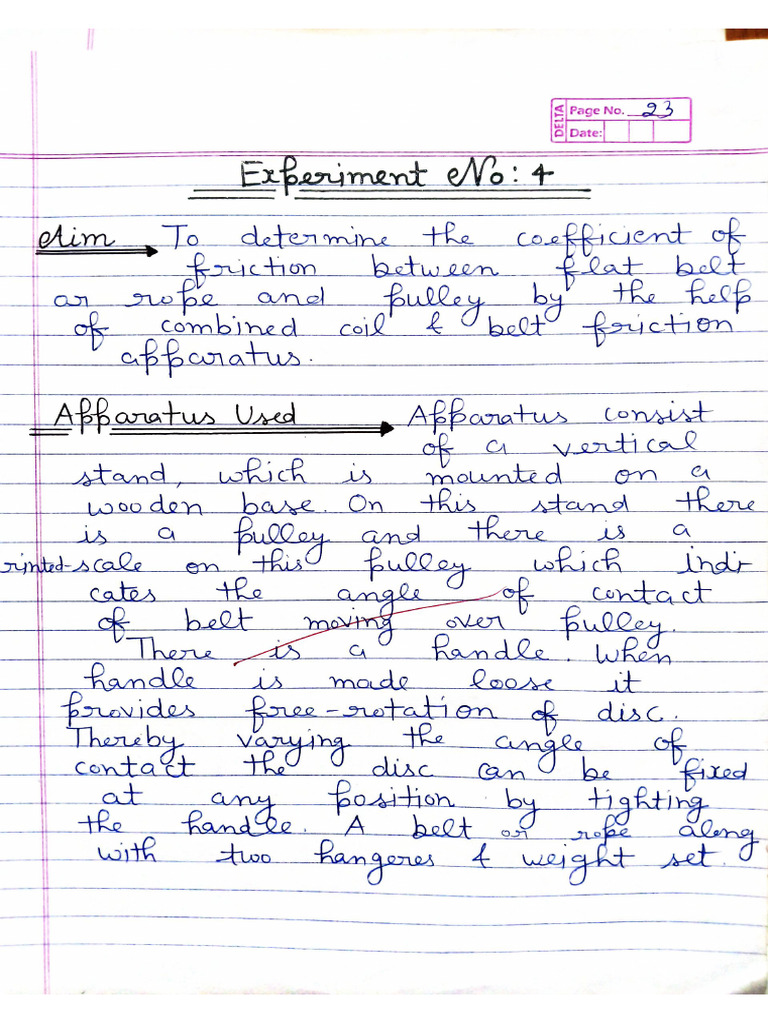 DELTA
Page No. 23
Date:
Experiment No: 4
Aim To determine the coefficient of
friction between flat belt
or rope and pulley by the help
of combined coil & belt friction
apparatus.
Apparatus Used Apparatus consist
of a vertical
stand, which is mounted on a
wooden base. On this stand there
is a pulley and there is a
rinted-scale on this pulley which indi
cates the angle of contact
of belt moving over pulley.
There is a handle. When
handle is made loose it
provides free-rotation of disc.
Thereby varying the angle of
contact the disc can be fixed
at any position by tighting
the handle. A belt or rope along
with two hangeres & weight set.